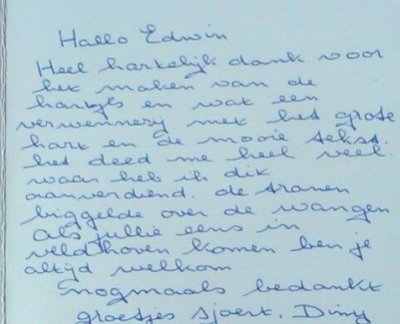 Hallo Edwin
Heel hartelijk dank voor
het maken van de
hartjes en wat een
verwennerij met het grote
hart en de mooie tekst.
het deed me heel veel.
waar heb ik dik
aan verdiend. de tranen
biggelde over de wangen
als jullie eens in
veldhoven komen ben je
altijd welkom
Nogmaals bedankt
groetjes Sjoert. Diny